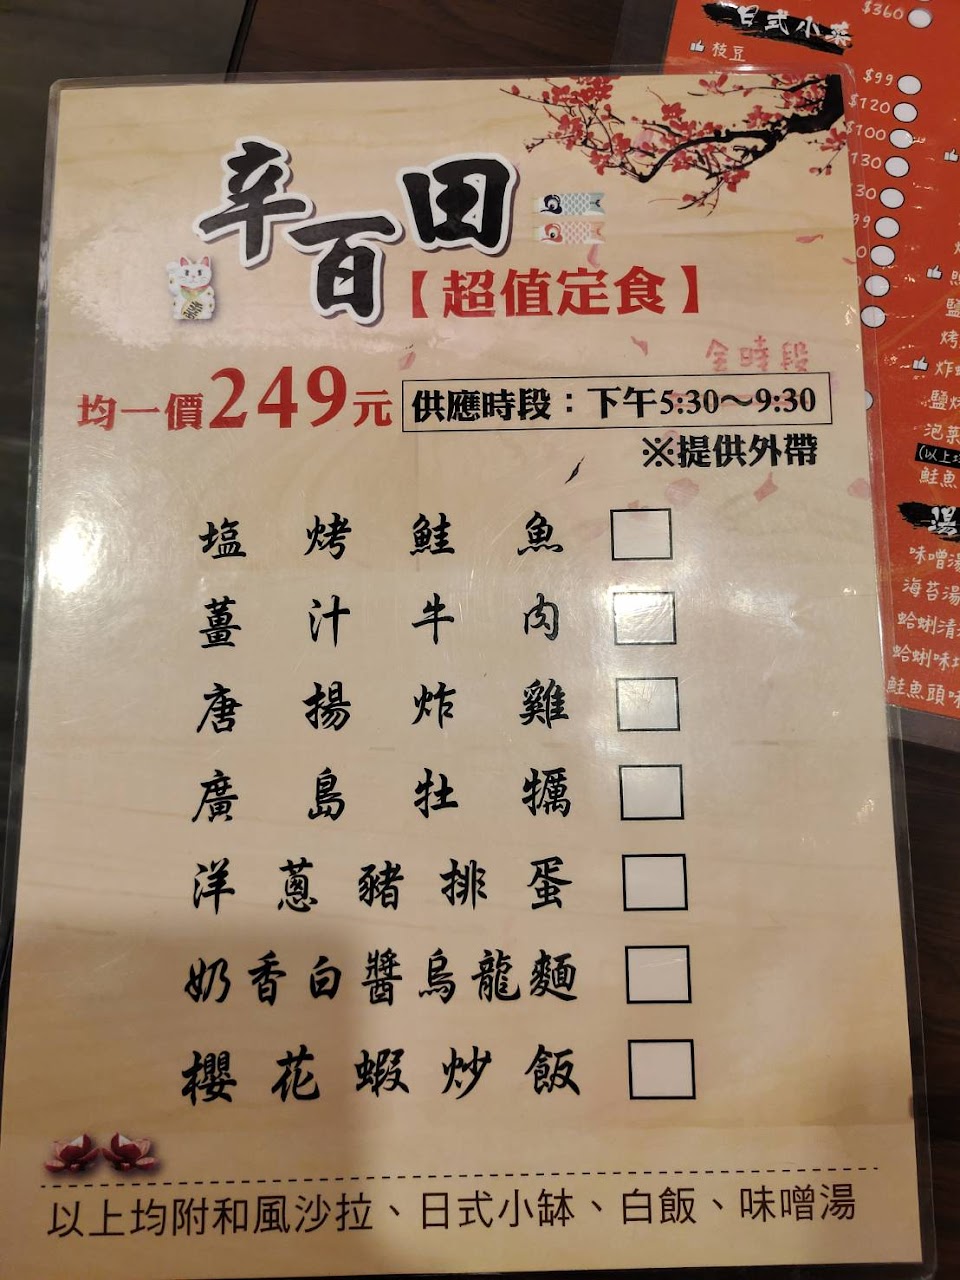 辛百田
【超值定食】
全時段
均一價249元
供應時段：下午5:30～9:30
※提供外帶
塩烤鮭魚
薑汁牛肉
唐揚炸雞
廣島牡蠣
洋蔥豬排蛋
奶香白醬烏龍麵
櫻花蝦炒飯
以上均附和風沙拉、日式小缽、白飯、味噌湯
$360
日式小菜
枝豆
$99
$120
$100
130
泡菜
(以上均
鮭魚
湯
味噌湯
海苔湯
蛤蜊清
蛤蜊味
鮭魚頭味